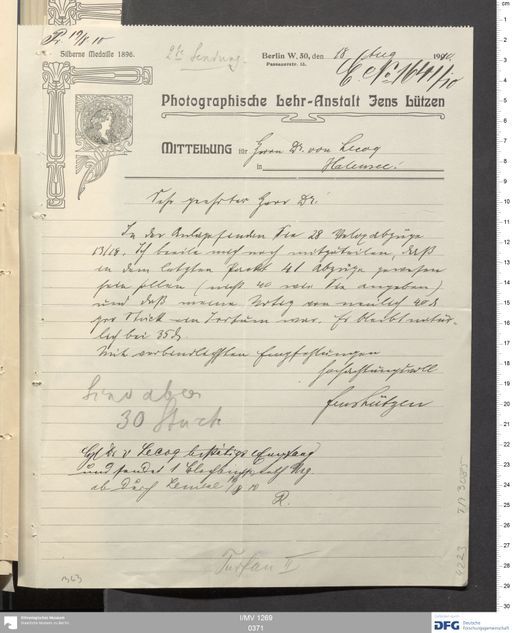 Pr. 19/8 10
2te Sendung.
Silberne Medaille 1896.
Berlin W. 50, den 18 Aug 1910.
Passauerstr. 15.
E No 1641/10
Photographische Lehr-Anstalt Jens Lützen
MITTEILUNG für Herrn Dr. von Lecoq
in Halensee.
Sehr geehrter Herr Dr.
In der Anlage senden Sie 28 Veloxabzüge
13/18. Ich beeile mich noch mitzuteilen, daß
in dem letzten Paket 41 Abzüge gewesen
sein sollen (nicht 40 wie Sie angeben)
und daß meine Notiz von neulich 40 d
pro Stück ein Irrtum war. Es bleibt natür-
lich bei 35 d.
Mit verbindlichsten Empfehlungen
hochachtungsvoll
Jens Lützen
Sind aber
30 Stück
Hr. Dr. v Lecoq bestätigt Empfang
und sendet 1
ab durch
R.
Turfan II
4223
363
Ethnologisches Museum
Staatliche Museen zu Berlin
I/MV 1269
0371
DFG Deutsche
Forschungsgemeinschaft